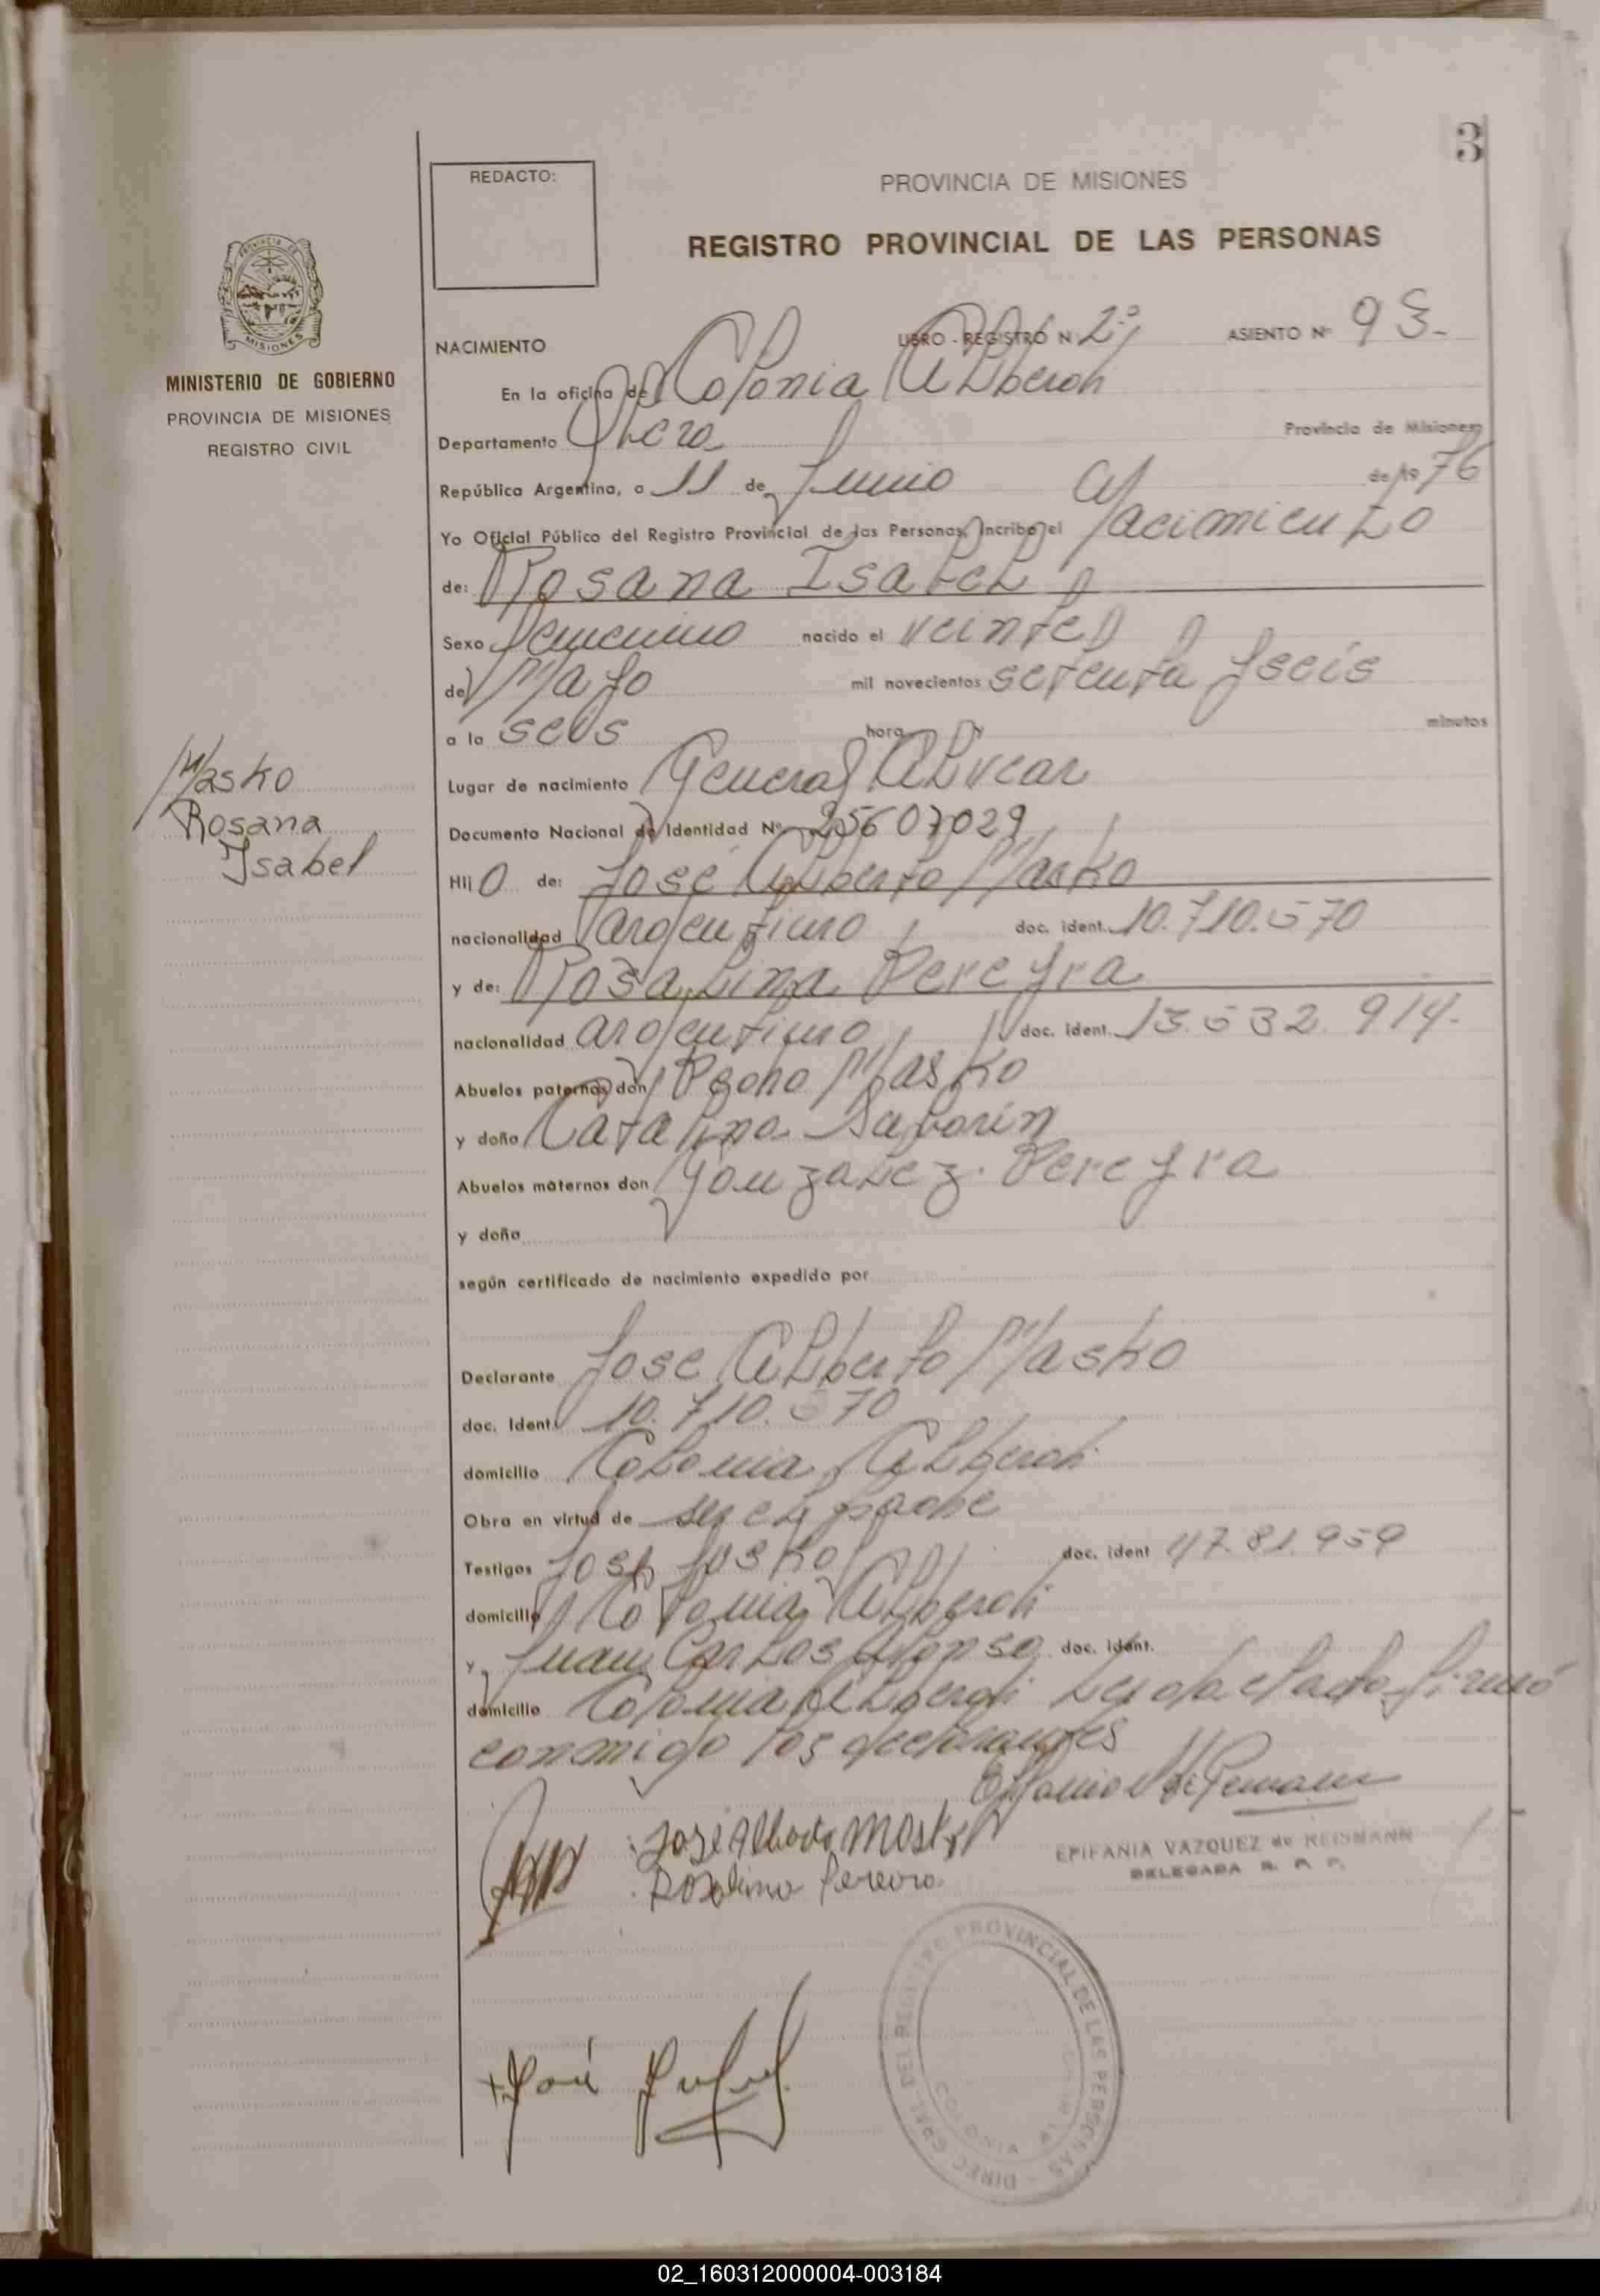 3
REDACTO:
PROVINCIA DE MISIONES
REGISTRO PROVINCIAL DE LAS PERSONAS
PROVINCIA DE
MISIONES
MINISTERIO DE GOBIERNO
PROVINCIA DE MISIONES
REGISTRO CIVIL
NACIMIENTO LIBRO - REGISTRO Nº 2º ASIENTO Nº 93-
En la oficina de Colonia Alberdi
Departamento Obera Provincia de Misiones
República Argentina, a 11 de Junio de 1976
Yo Oficial Público del Registro Provincial de las Personas, Incribo el Nacimiento
de: Rosana Isabel
Sexo Femenino nacido el veinte
de Mayo mil novecientos setenta y seis
a la seis hora y minutos
Lugar de nacimiento General Alvear
Documento Nacional de Identidad Nº 25607029
Masko
Rosana
Isabel
Hijo de: José Alberto Masko
nacionalidad argentino doc. ident. 10.710.570
y de: Rosalina Pereyra
nacionalidad argentino doc. ident. 13.532.914.
Abuelos paternos don Pedro Masko
y doña Catalina
Abuelos maternos don Gonzalez Pereyra
y doña
según certificado de nacimiento expedido por
Declarante Jose Alberto Masko
doc. Ident. 10.710.570
domicilio Colonia Alberdi
Obra en virtud de ser el padre
Testigos José doc. ident
domicilio Colonia Alberdi
y Juan Carlos Alonso doc. ident.
domicilio Colonia Alberdi Leida el acta firmó
conmigo los declarantes
José Alberto Masko
Rosalina Pereyra
EPIFANIA VAZQUEZ de REISMANN
DELEGADA R. P. P.
José
DIREC. GRAL. DEL REGISTRO PROVINCIAL DE LAS PERSONAS
COLONIA
02_160312000004-003184